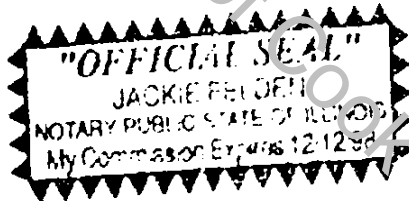 "OFFICIAL SEAL"
JACKIE
NOTARY PUBLIC STATE OF ILLINOIS
My Commission Expires 12/12/98
of Cook